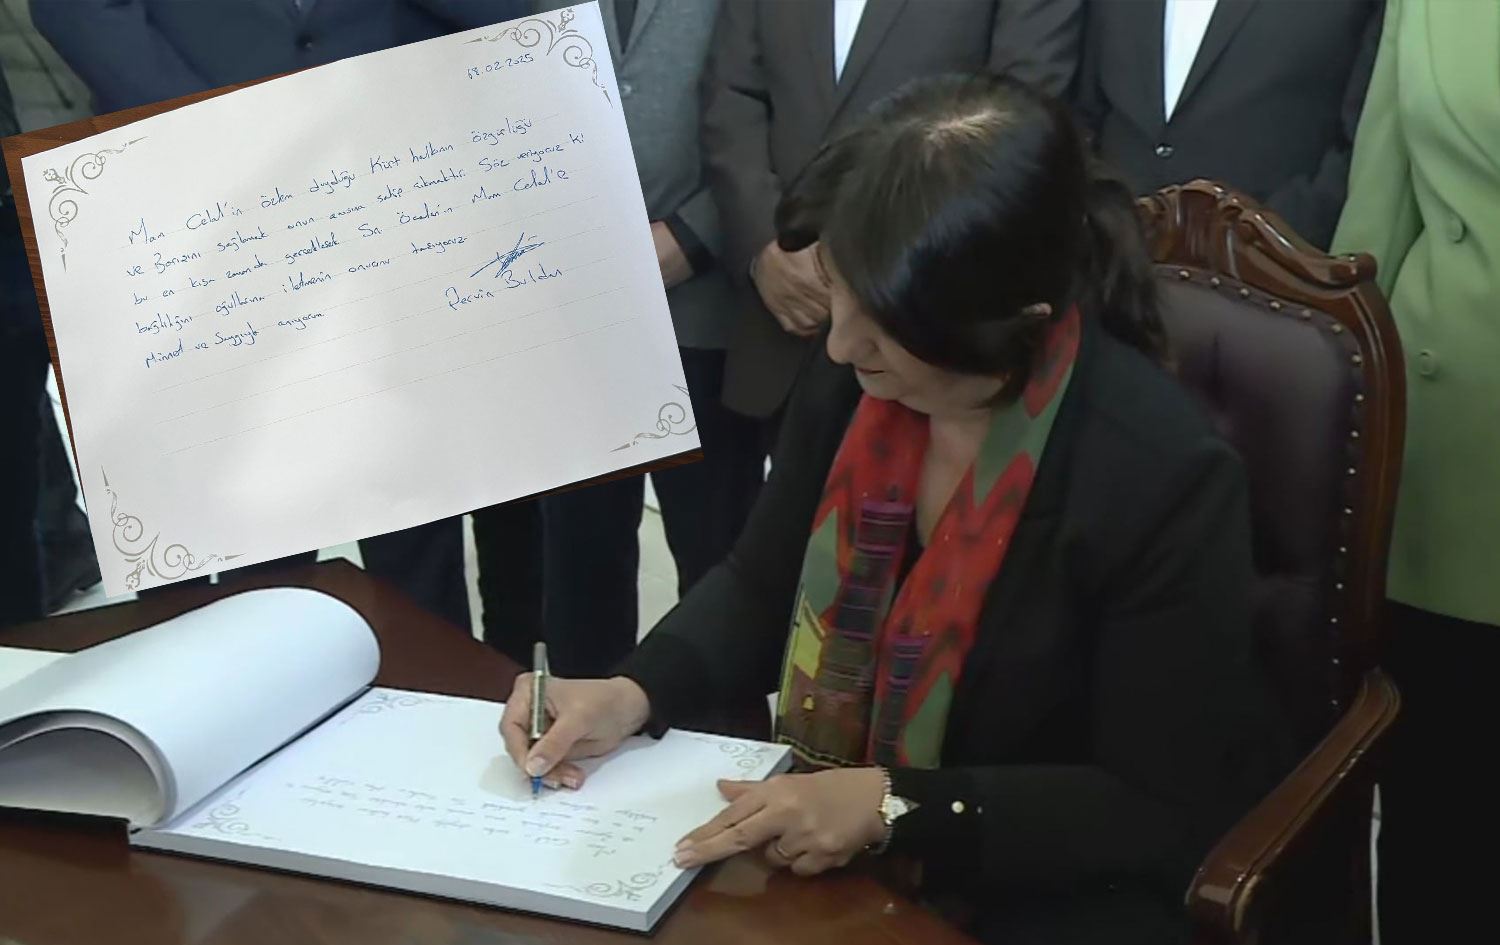 18.02.2025
Mam Celal'in özlem duyduğu Kürt halkının özgürlüğü
ve Barışını sağlamak onun anısına sahip çıkmaktır. Söz veriyoruz ki
bu en kısa zamanda gerçekleşecek Sn. Öcalan'ın Mam Celal'e
bağlılığını oğullarına iletmenin onurunu taşıyoruz
Minnet ve Saygıyla anıyorum
Pervin Buldan